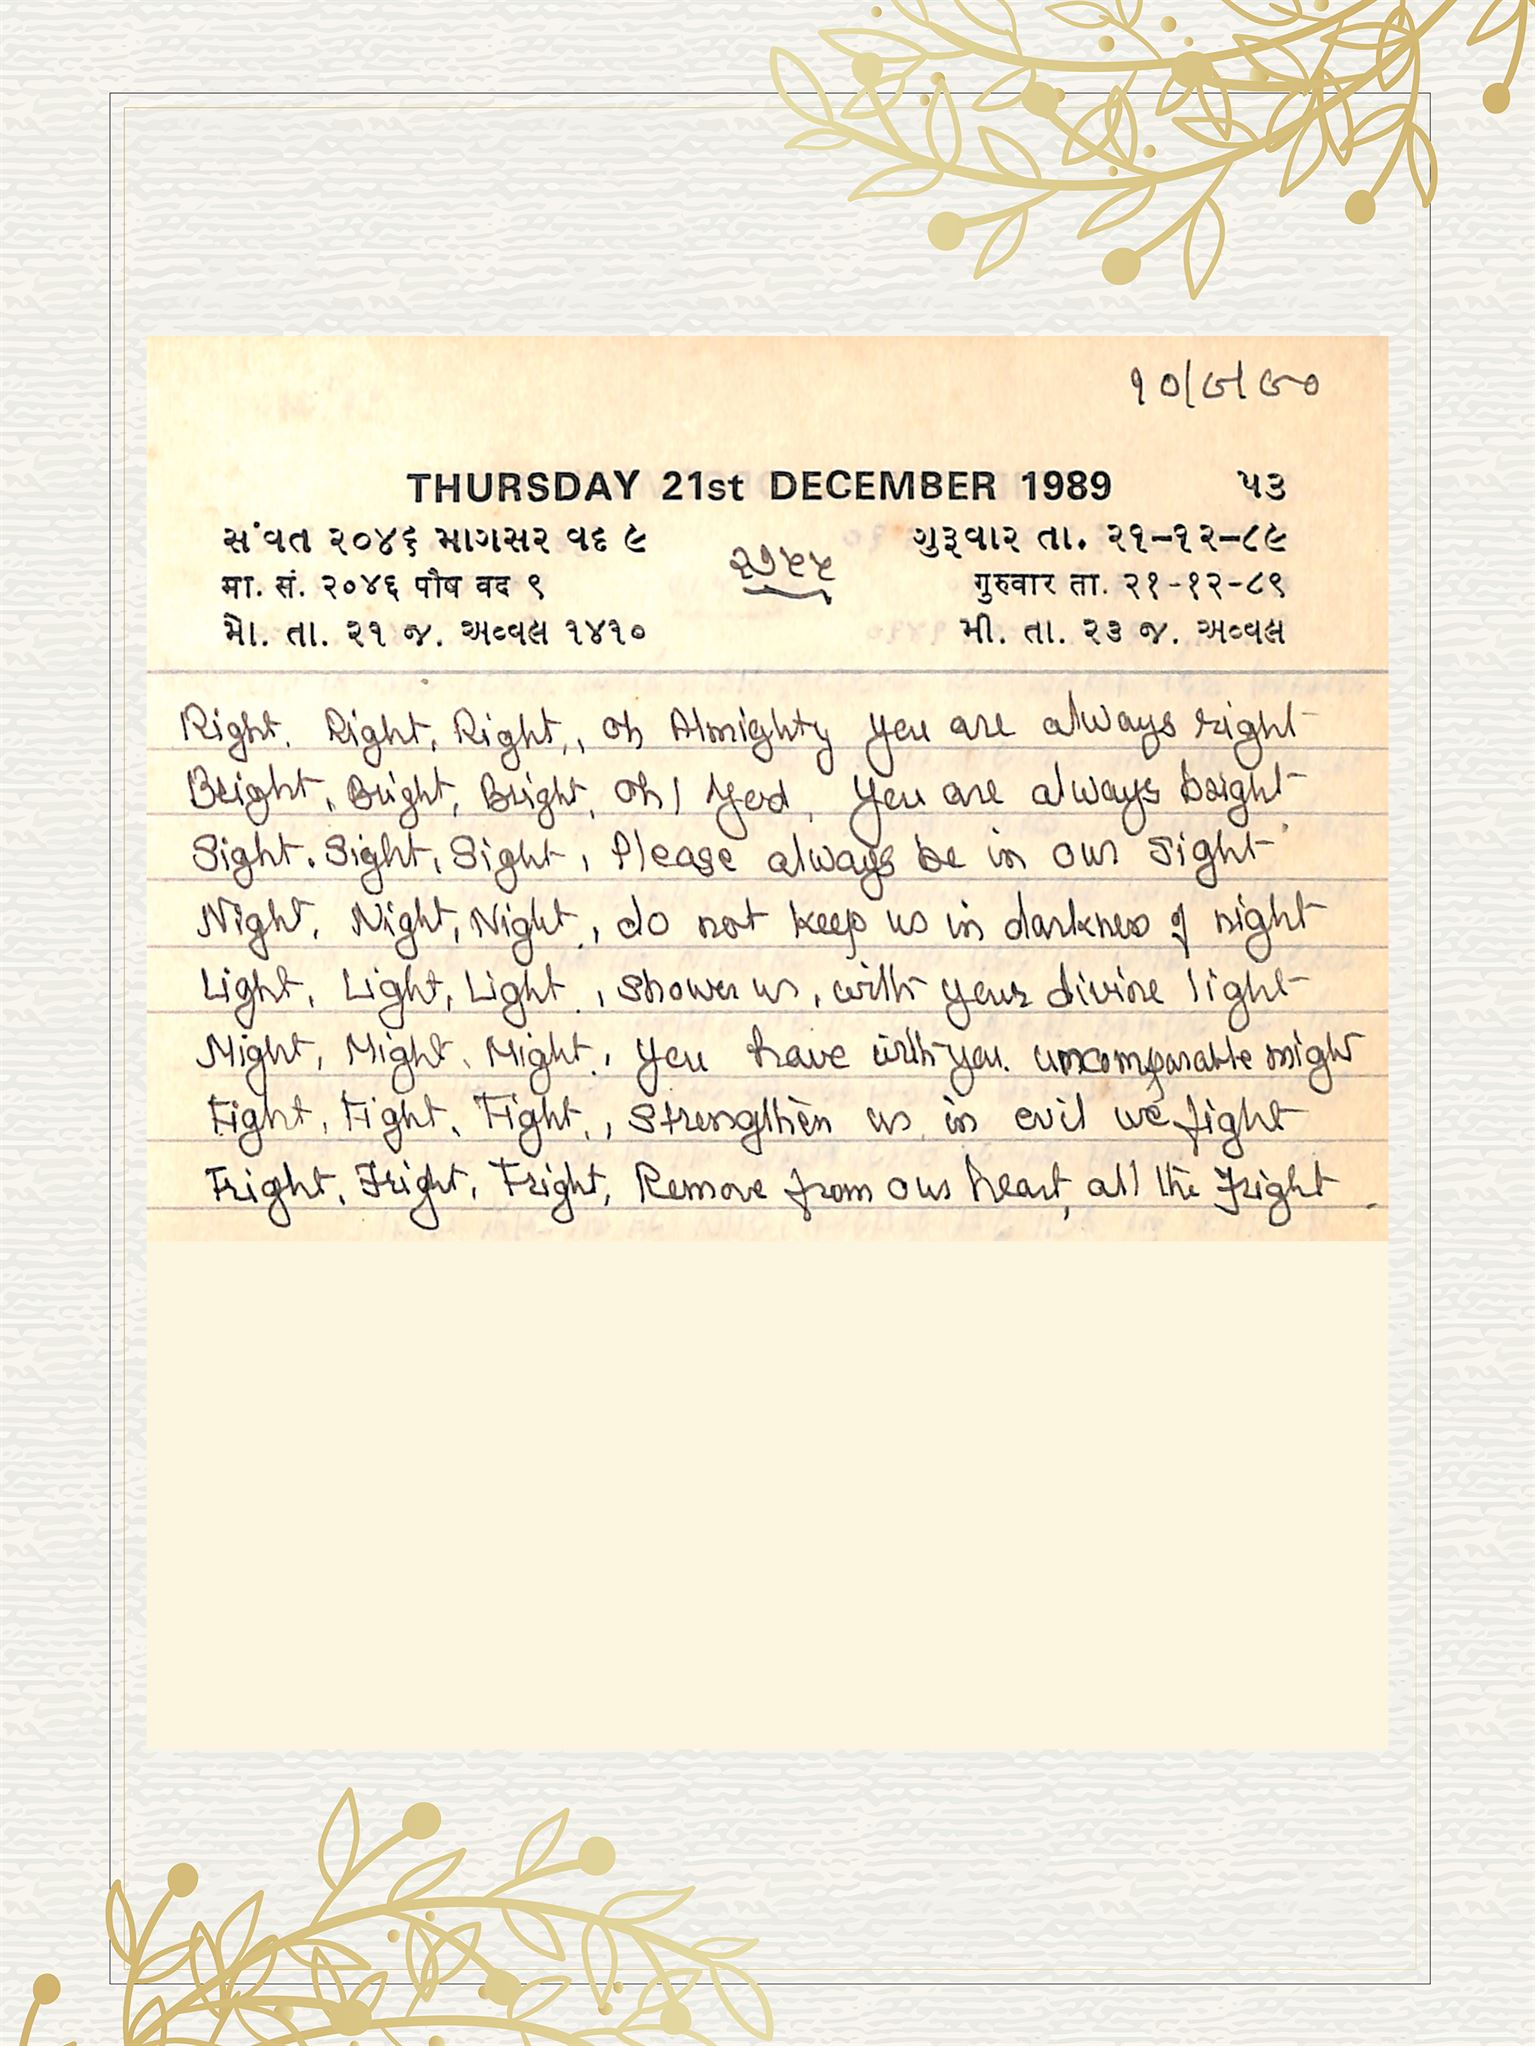 ૧૦/૭/૭૦
THURSDAY 21st DECEMBER 1989 ૫૩
સંવત ૨૦૪૬ માગસર વદ ૯ ગુરૂવાર તા. ૨૧-૧૨-૮૯
मा. सं. २०४६ पौष वद ९ गुरुवार ता. २१-१२-८९
મો. તા. ૨૧ જ. અવ્વલ ૧૪૧૦ મી. તા. ૨૩ જ. અવ્વલ
Right. Right, Right,, Oh Almighty you are always right
Bright, Bright, Bright, Oh! God, you are always bright
Sight. Sight, Sight, Please always be in our sight
Night, Night, Night, do not keep us in darkness of night
Light, Light, Light, shower us, with your divine light
Might, Might, Might, you have with you uncomparable might
Fight, Fight, Fight, strengthen us in evil we fight
Fright, Fright, Fright, Remove from our heart, all the fright.